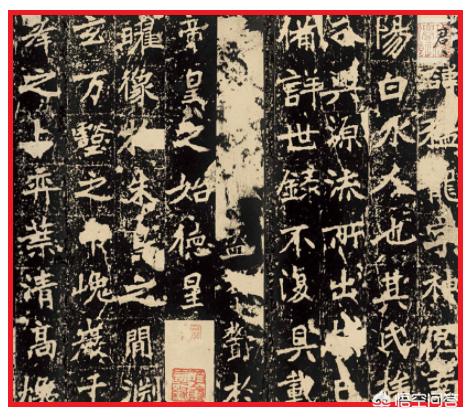 君諱猛龍字神冏南
陽白水人也其氏族
興源流所出故已
備詳世錄不復具載
益爵於
帝皇之始德星
曜像於朱鳥之間淵
玄万壑之中巍巖千
峰之上弈葉清高煥
悟空问答